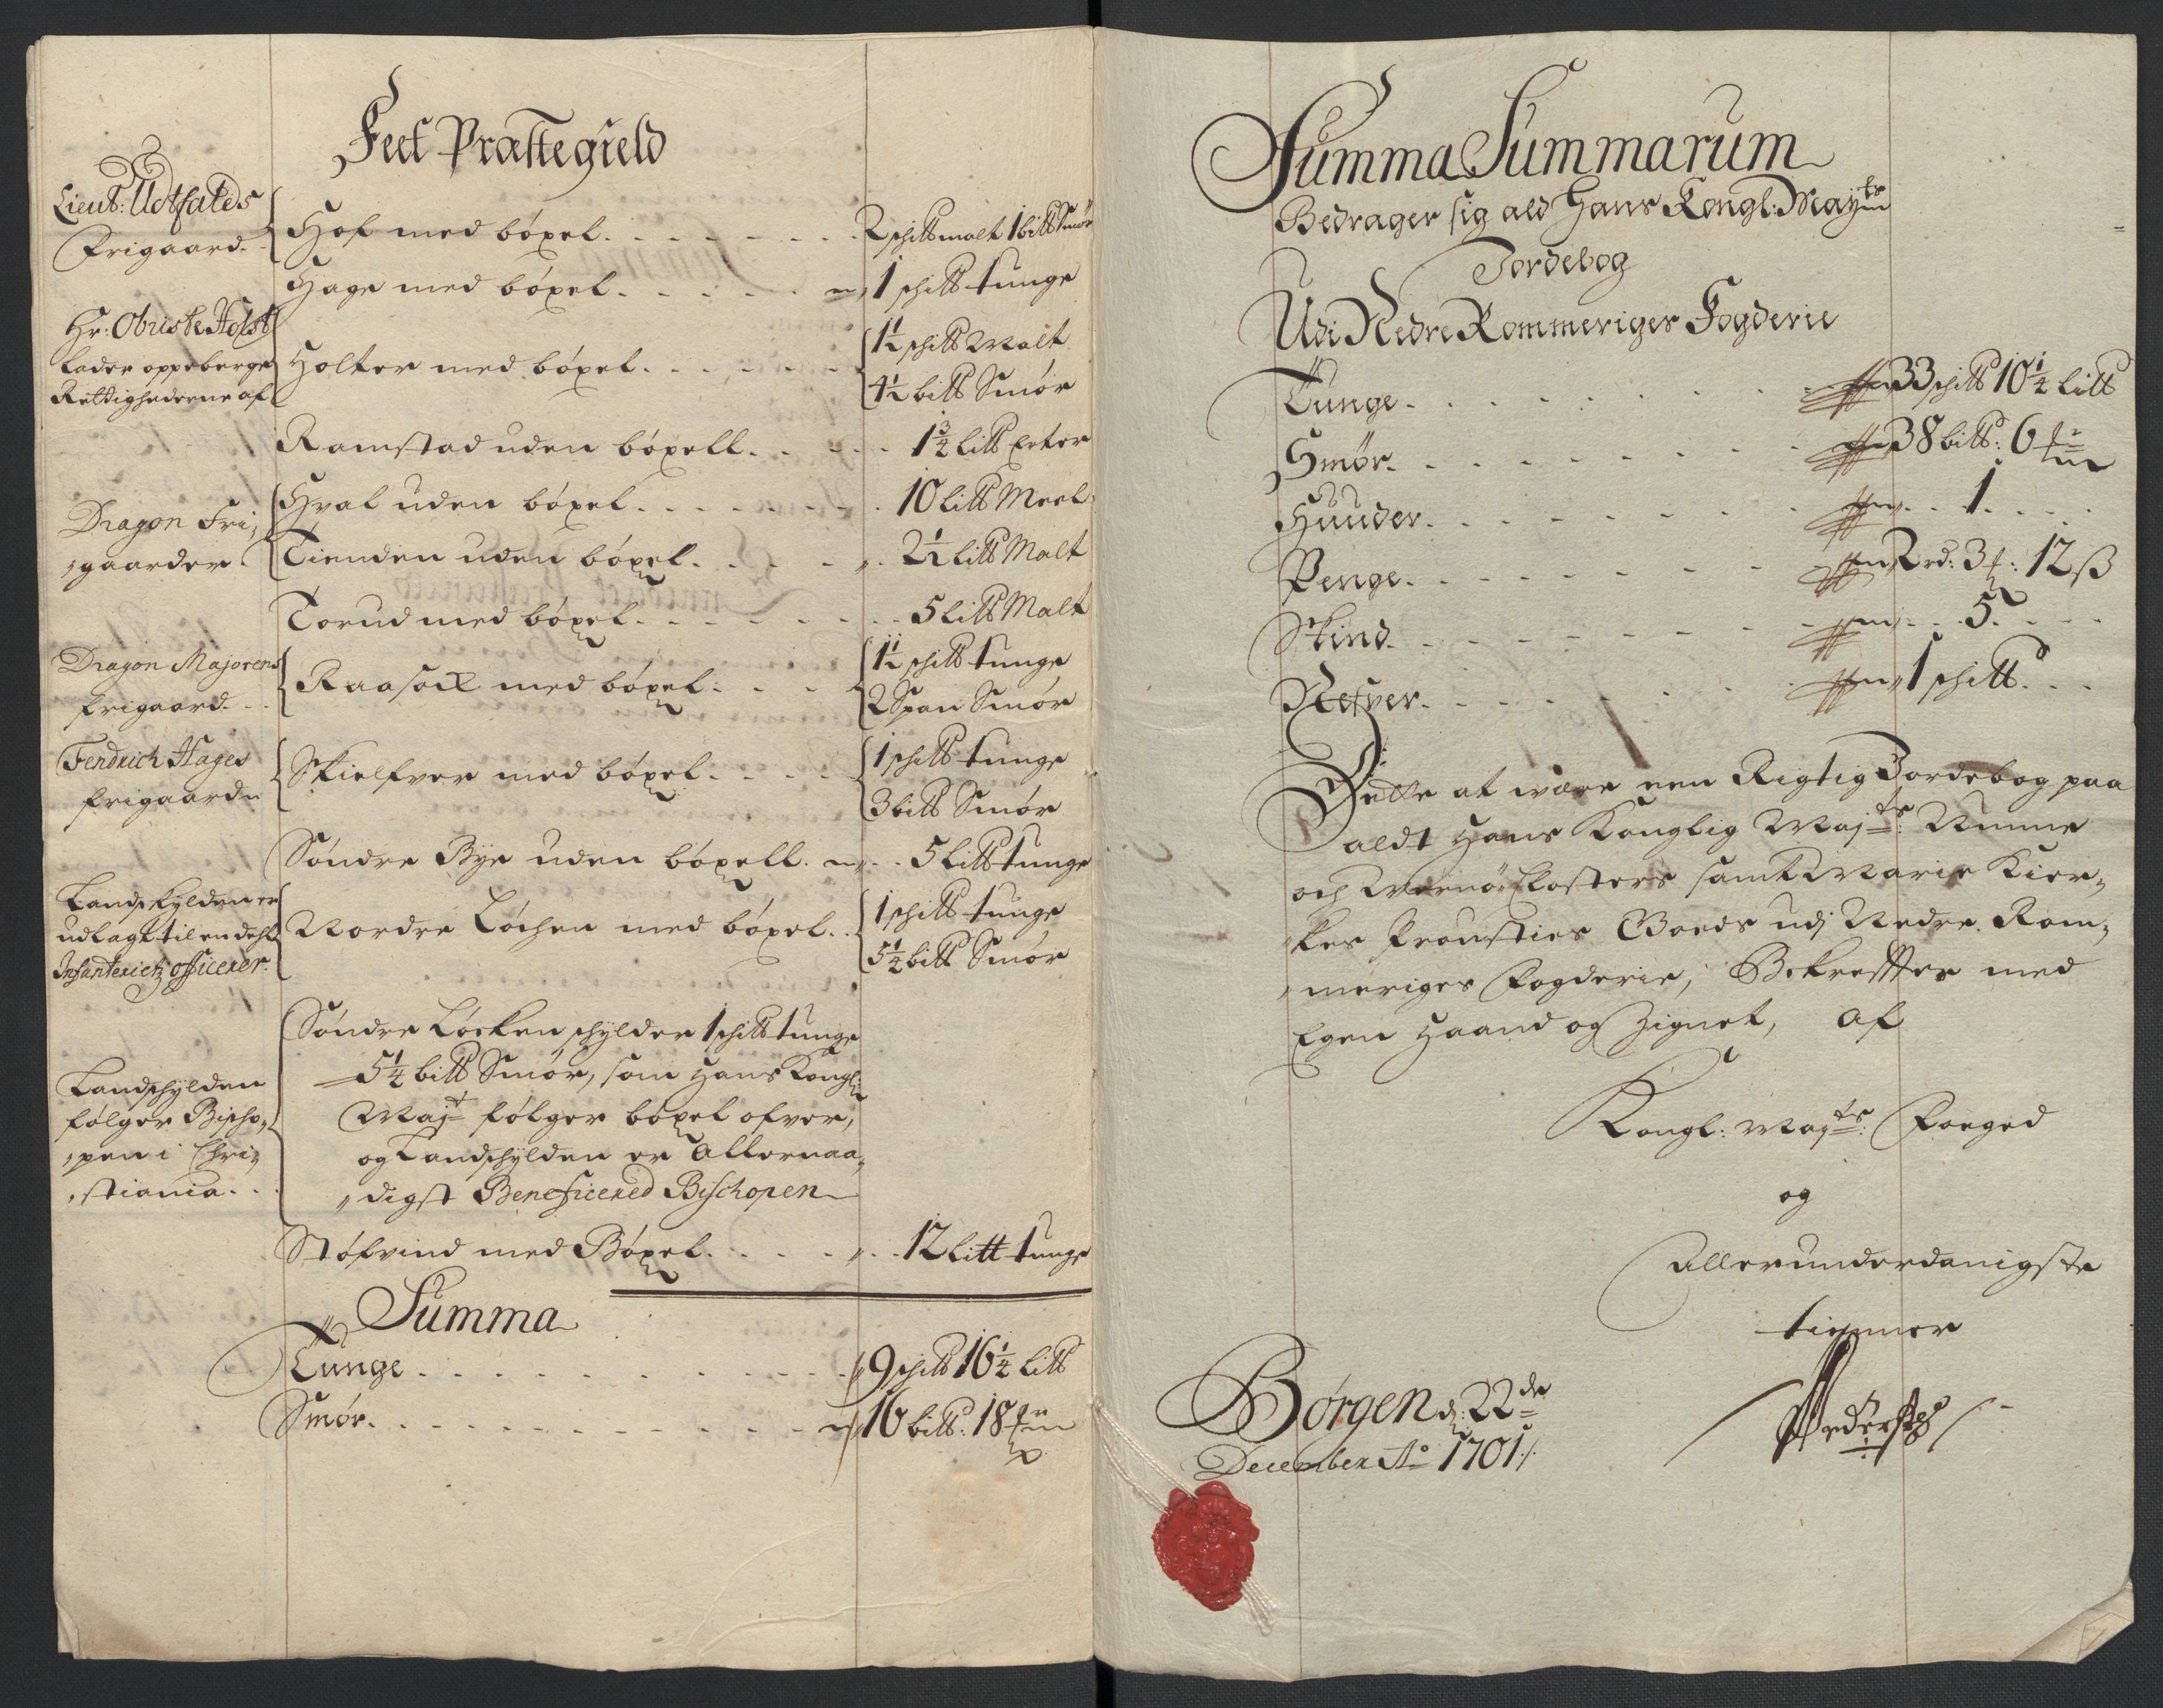 Feet Præstegield
Lieut: Udtfaldes
Frigaard.
Hof med bøxel. 2 schip℔ malt 1 bitt Smør
Hage med bøxel. 1 schip℔ tunge
Hr: Obriste Holst
lader oppeberge
Rettighederne af
Holter med bøxel. 1½ schip℔ Malt
4½ bitt Smør
Ramstad uden bøxell. 1¾ litt Erter
Dragon Fri,
,gaarder.
Hval uden bøxel. 10 litt Meel
Tienden uden bøxel. 2½ litt Malt
Torud med bøxel. 5 litt Malt
Dragon Majorens
frigaard.
Raasock med bøxel. 1½ schip℔ tunge
2 Span Smør
Fendrich Hages
frigaard
Skielfver med bøxel. 1 schip℔ tunge
3 bitt Smør
Søndre Bye uden bøxell. 5 litt tunge
Landskylden er
udlagt til en dehl
Infanterietz officerer.
Nordre Løchen med bøxel. 1 schip℔ tunge
5¼ bitt Smør
Landschylden
følger Bischo,
,pen i Chri,
,stiania.
Søndre Løcken schylder 1 schip℔ tunge
5¼ bitt Smør, som Hans Kongl:
Majt følger bøxel ofver,
og Landschylden er Allernaa,
,digst Beneficered Bischopen
Støfvind med Bøxel. 12 litt tunge
Summa
Tunge. 9 schip℔ 16¼ litt
Smør. 16 bitt: 18
Summa Summarum
Bedrager sig ald Hans Kongl: Mayts
Jordebog
Udi Nedre Rommeriges Fogderie
Tunge. 33 schip℔ 10¼ litt
Smør. 38 bitt: 6
Huuder. 1
Penge. 2 rd: 3 f: 12 ß
Skind. 5
Nefver. 1 schip℔
Dette at være een Rigtig Jordebog paa
aldt Hans Konglig Majts: Numme
och Wernø Closters samt Marie Kier,
,kes Prousties Goeds udj Nedre Rom,
,meriges Fogderie, Bekreffter med
Egen Haand og Zignet, Af
Kongl: Majts: Foeged
og
Allerunderdanigste
tienner
Børgen d: 22de
December Ao 1701